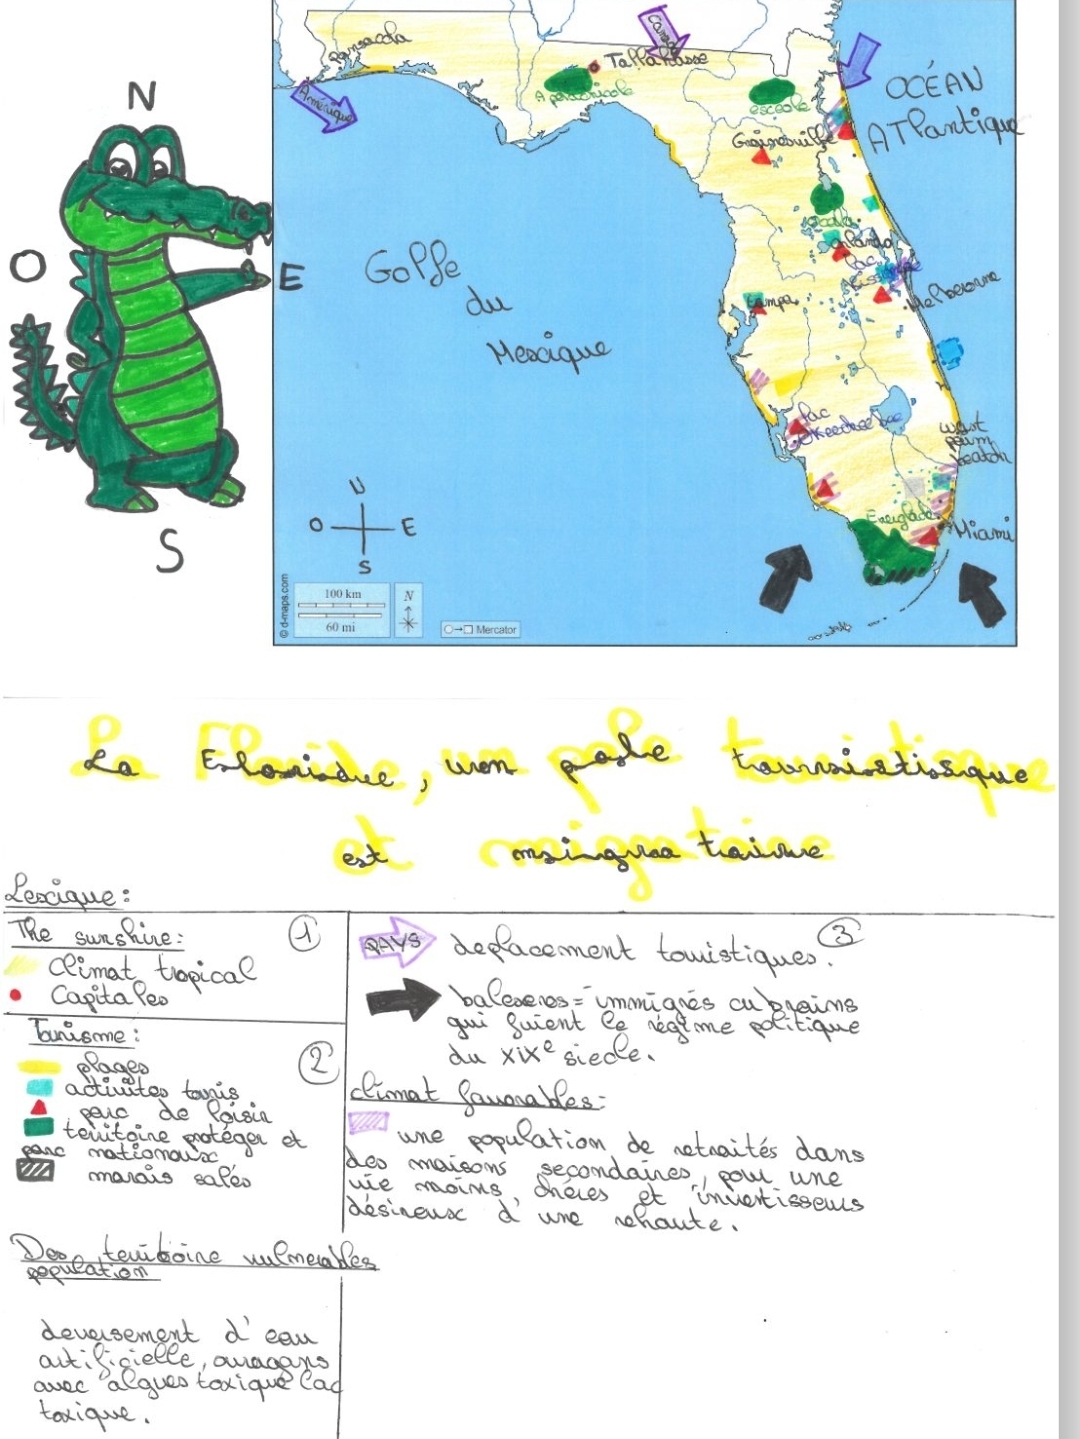 N
O
E
S
Pensacola
Canada
Tallahasse
Amérique
Apalachicola
esceola
OCÉAN
ATlantique
Gainesville
Ocala
Orlando
Lac
Melbourne
tampa
Golfe
du
Mexique
Lac
Okeechee bee
west
paum
beatch
Everglades
Miami
N
O
E
S
100 km
60 mi
N
Mercator
© d-maps.com
La Floride, un pole touristique
et migratoire
Lexique:
The sunshire:
1
climat tropical
Capitales
Tourisme:
2
plages
activités touris
parc de loisir
territoire protéger et
parc nationaux
marais salés
Des territoire vulnerables
population
deversement d'eau
artificielle, ouragans
avec algues toxique lac
toxique.
PAYS
deplacement touristiques.
3
baleseros = immigrés cubains
qui fuient le régime politique
du XIXe siecle.
climat favorables:
une population de retraités dans
des maisons secondaires, pour une
vie moins chères et investisseurs
désireux d'une rehaute.